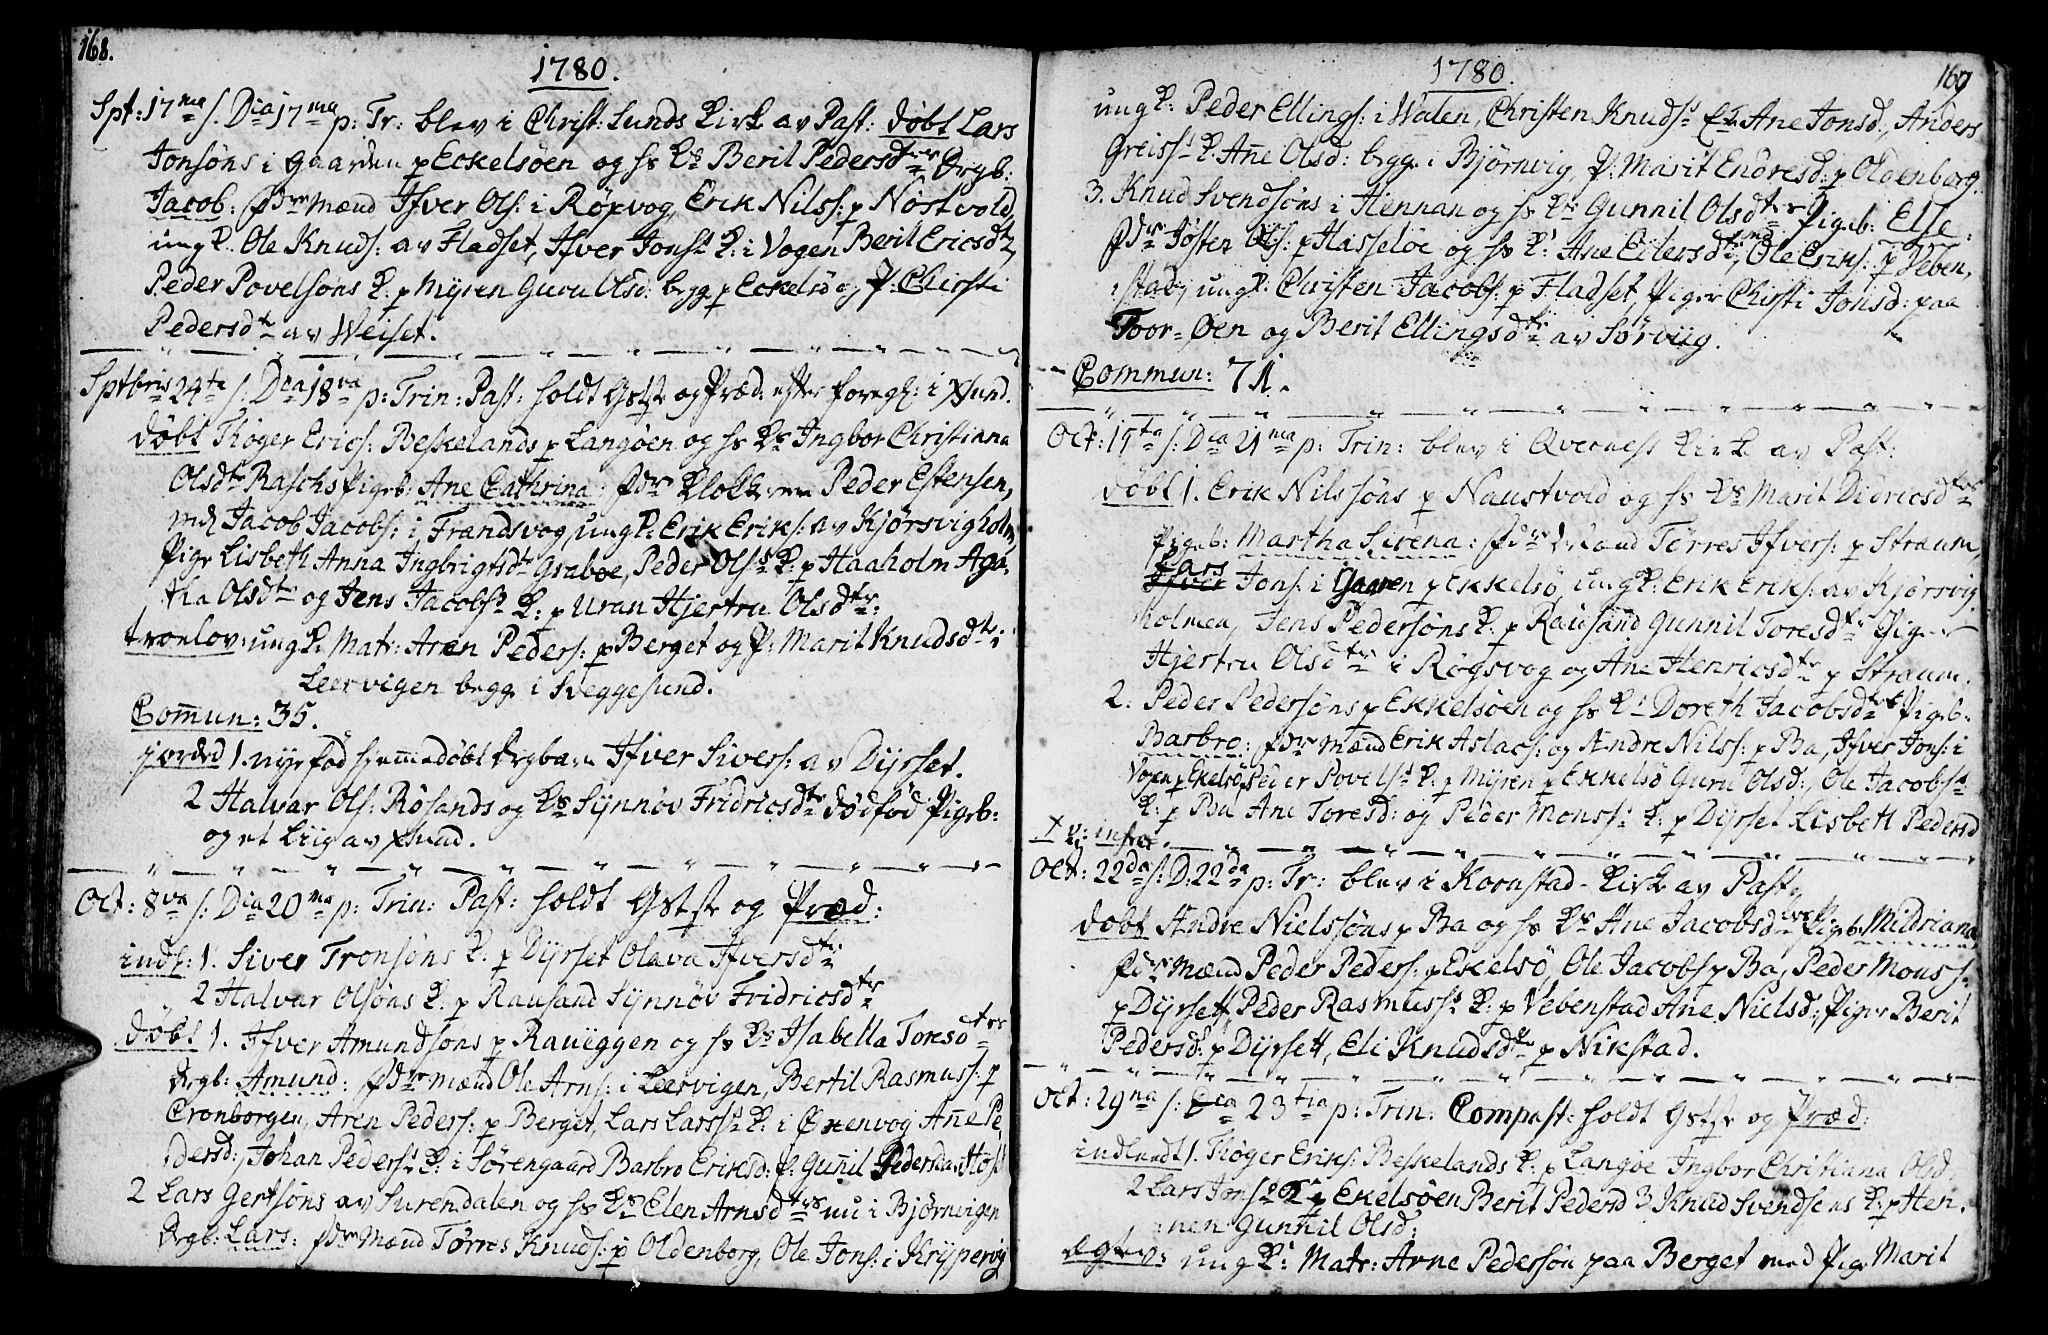 168.
1780.
Spt: 17ma s. Dca 17ma p: Tr: blev i Christ: Lunds Kirk av Past: døbt Lars
Jonsøns i Gaarden p Eckelsøen og hs Ks Beril Pedersdtrs Drgb:
Jacob: fdre mænd Ifver Ols: i Röxvog, Erik Nilss: p Nöstvold,
ungk. Ole Knuds: av Fladset, Ifver Jonss K: i Vogen Beril Ericsdtr,
Peder Povelsøns K: p Myren Guru Olsd: begg p Eckelsö og P: Chirsti
Pedersdtr av Weiset.
Sptbris 24ta s. Dca 18va p: Trin: Past: holdt Gstste og Præd: efter foregl: i Xsund.
døbt Thöger Erics: Beskelands p Langøen og hs Ks Ingbor Christiana
Olsdtr Raschs Pigeb: Ane Cathrina: fdre Klokkeren Peder Estensen,
md Jacob Jacobs: i Frandsvog, ungk: Erik Eriks: av Kjörsvigholm,
Pige Lisbeth Anna Ingbrigtsdtr Graboe, Peder Olss K: p Haaholm Aga-
tha Olsdtr og Jens Jacobss K: p Uran Hjertru Olsdtr:
troelov: ungk. Matr: Aren Peders: p Berget og P: Marit Knudsdtr i
Leervigen begge i Sveggesund.
Commun: 35.
jorded 1. nyefød hjemmedøbt Drgbarn Ifver Sivers: av Dyrset.
2 Halvar Ols: Rösands og Ks Synnöv Fridricsdtr dödföd Pigeb:
og et Liig av Xsund.
Oct: 8va s: Dca 20ma p: Trin: Past: holdt Gstste og Præd:
indl: 1. Siver Tronsøns K: p Dyrset Olava Ifversdtr
2 Halvar Olsøns K: p Rausand Synnöv Fridricsdtr
døbt 1. Ifver Amundsøns p Raueggen og hs Ks Isabella Toresdtrs
Drgb: Amund: fdre mænd Ole Arns: i Leervigen, Bertil Rasmuss: p
Cronborgen, Aren Peders: p Berget, Lars Larss K: i Öxenvog Ane Pe-
dersd:, Johan Pederss K: i Sörengaard Barbro Eriksd: P: Gunil Pedersd
2 Lars Gertsøns av Surendalen og hs Ks Elen Arnsdtrs nu i Björnvigen
Drgb: Lars: fdre Mænd Törres Knuds: p Oldenborg, Ole Jons: i Krypervig
169
1780.
ungk: Peder Ellings: i Walen, Christen Knudss K: Ane Jonsd:, Anders
Greiss K: Ane Olsd: begge i Björnvig, P: Marit Endresd: p Oldenborg.
3. Knud Svendsøns i Hennan og hs Ks Gunnil Olsdtrs Pigeb: Else:
fdre Jösten Ols: p Hasselöe og hs K: Ane Eilersdtr, Ole Eriks: p Veben-
stad, ungk: Christen Jacobs: p Fladset, Piger Chirsti Jonsd: paa
Toor-Øen og Berit Ellingsdtr av Sörviig.
Commun: 71.
Oct: 15ta s: Dca 21ma p: Trin: blev i Qverness Kirk av Past:
døbt 1. Erik Nilssøns p Naustvold og hs Ks Marit Didricsdtrs
Pigeb: Martha Sirena: fdre Mænd Torres Ifvers: p Straum,
Lars
Ifver Jons: i Gaaren p Ekkelsö, ungk: Erik Eriks: av Kjörsvig-
holmen, Jens Pedersøns K: p Rausand Gunnil Toresdtr Piger
Hjertru Olsdtr i Rögsvog og Ane Henricsdtr p Straum.
2. Peder Pedersøns p Ekkelsøen og hs Ks Doreth Jacobsdtrs Pigeb:
Barbro: fdre mænd Erik Aslacs: og Andre Nilss: p Ba, Ifver Jons: i
Vogen p Ekelsö, Peder Povelss K: p Myren p Ekkelsö Guru Olsd:, Ole Jacobss
K: p Ba Ane Toresd: og Peder Monss K: p Dyrset Lisbeth Pedersd
X v: infra.
Oct: 22da s: D: 22da p: Tr: blev i Kornstad-Kirke av Past:
døbt Andre Nielssøns p Ba og hs Ks Ane Jacobsdtrs Pigeb: Mildriana,
fdre Mænd Peder Peders: p Ekelsö, Ole Jacobs p Ba, Peder Monss:
p Dyrsett, Peder Rasmuss K: p Vebenstad Ane Nielsd:, Piger Berit
Pedersd: p Dyrsett, Eli Knudsdtr p Nikstad.
Oct: 29na s: Dca 23tia p: Trin: Compast: holdt Gstste og Præd:
indleedt 1. Thöger Eriks: Beskelands K: p Langöe Ingbor Christiana Olsd:
2 Lars Jons K p Ekelsøen Berit Pedersd 3 Knud Svendsens K: p Hen-
nen Gunnil Olsd:
Egtev: ungk: Matr: Arne Pedersön paa Berget med Pige Marit